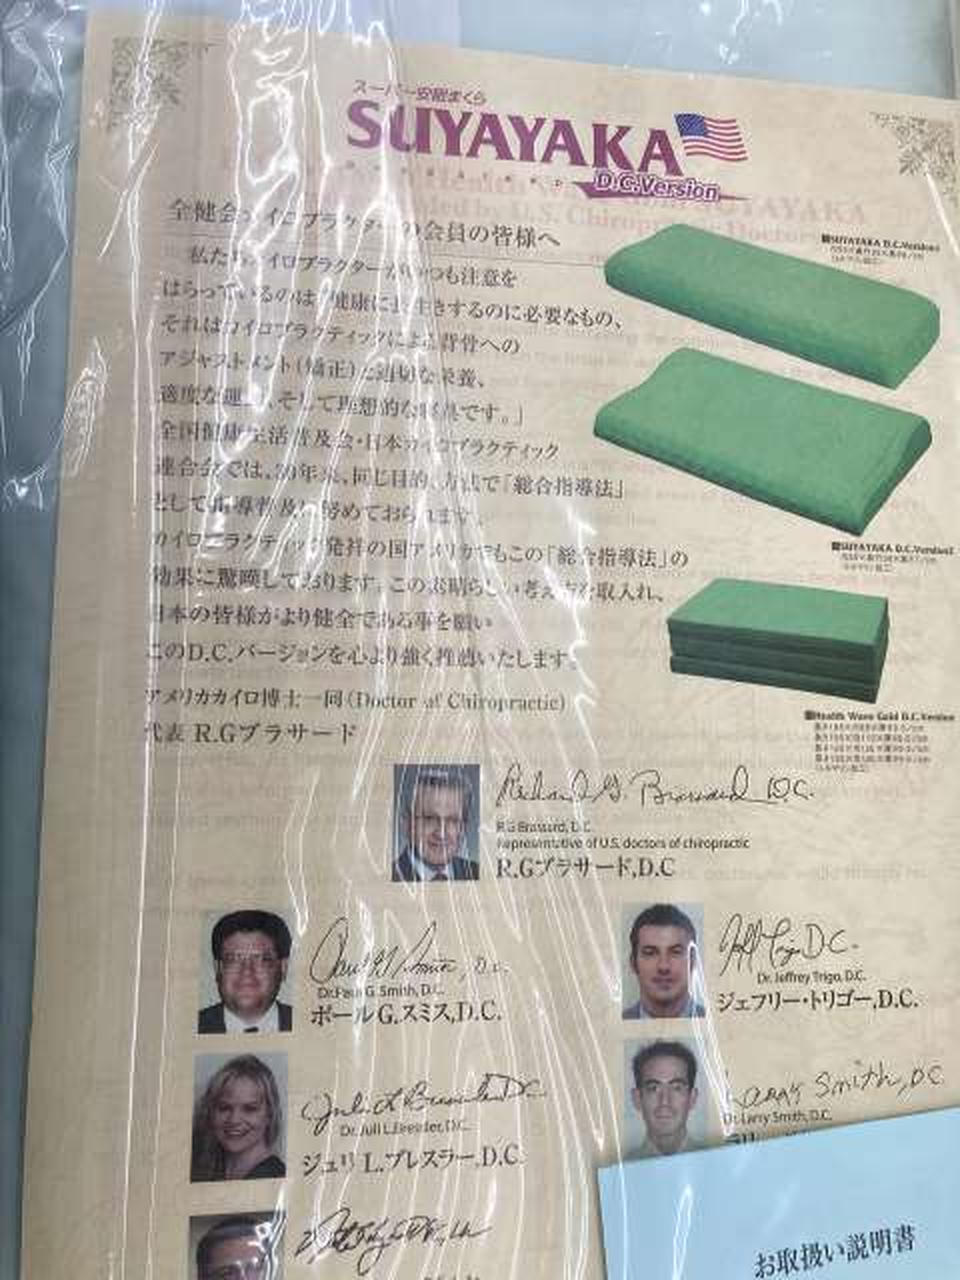 スーパー安眠まくら
SUYAYAKA
D.C.Version
全健会カイロプラクターの会員の皆様へ
私たちカイロプラクターがいつも注意を
はらっているのは「健康に長生きするのに必要なもの、
それはカイロプラクティックによる背骨への
アジャストメント(矯正)と適切な栄養、
適度な運動、そして理想的な寝具です。」
全国健康生活普及会・日本カイロプラクティック
連合会では、30年来、同じ目的、方法で「総合指導法」
として指導普及に努めておられます。
カイロプラクティック発祥の国アメリカでもこの「総合指導法」の
効果に驚嘆しております。この素晴らしい考え方を取入れ、
日本の皆様がより健全である事を願い
このD.C.バージョンを心より強く推薦いたします。
アメリカカイロ博士一同(Doctor of Chiropractic)
代表 R.Gブラサード
■SUYAYAKA D.C.Version1
■SUYAYAKA D.C.Version2
■Health Wave Gold D.C.Version
Richard G. Brassard D.C.
R.G Brassard, D.C.
Representative of U.S. doctors of chiropractic
R.Gブラサード,D.C
Dr.Paul G. Smith, D.C.
ポールG.スミス,D.C.
Dr. Jeffrey Trigo, D.C.
ジェフリー・トリゴー,D.C.
ジュリ L.ブレスラー,D.C.
Larry Smith, DC
Dr. Larry Smith, D.C.
お取扱い説明書